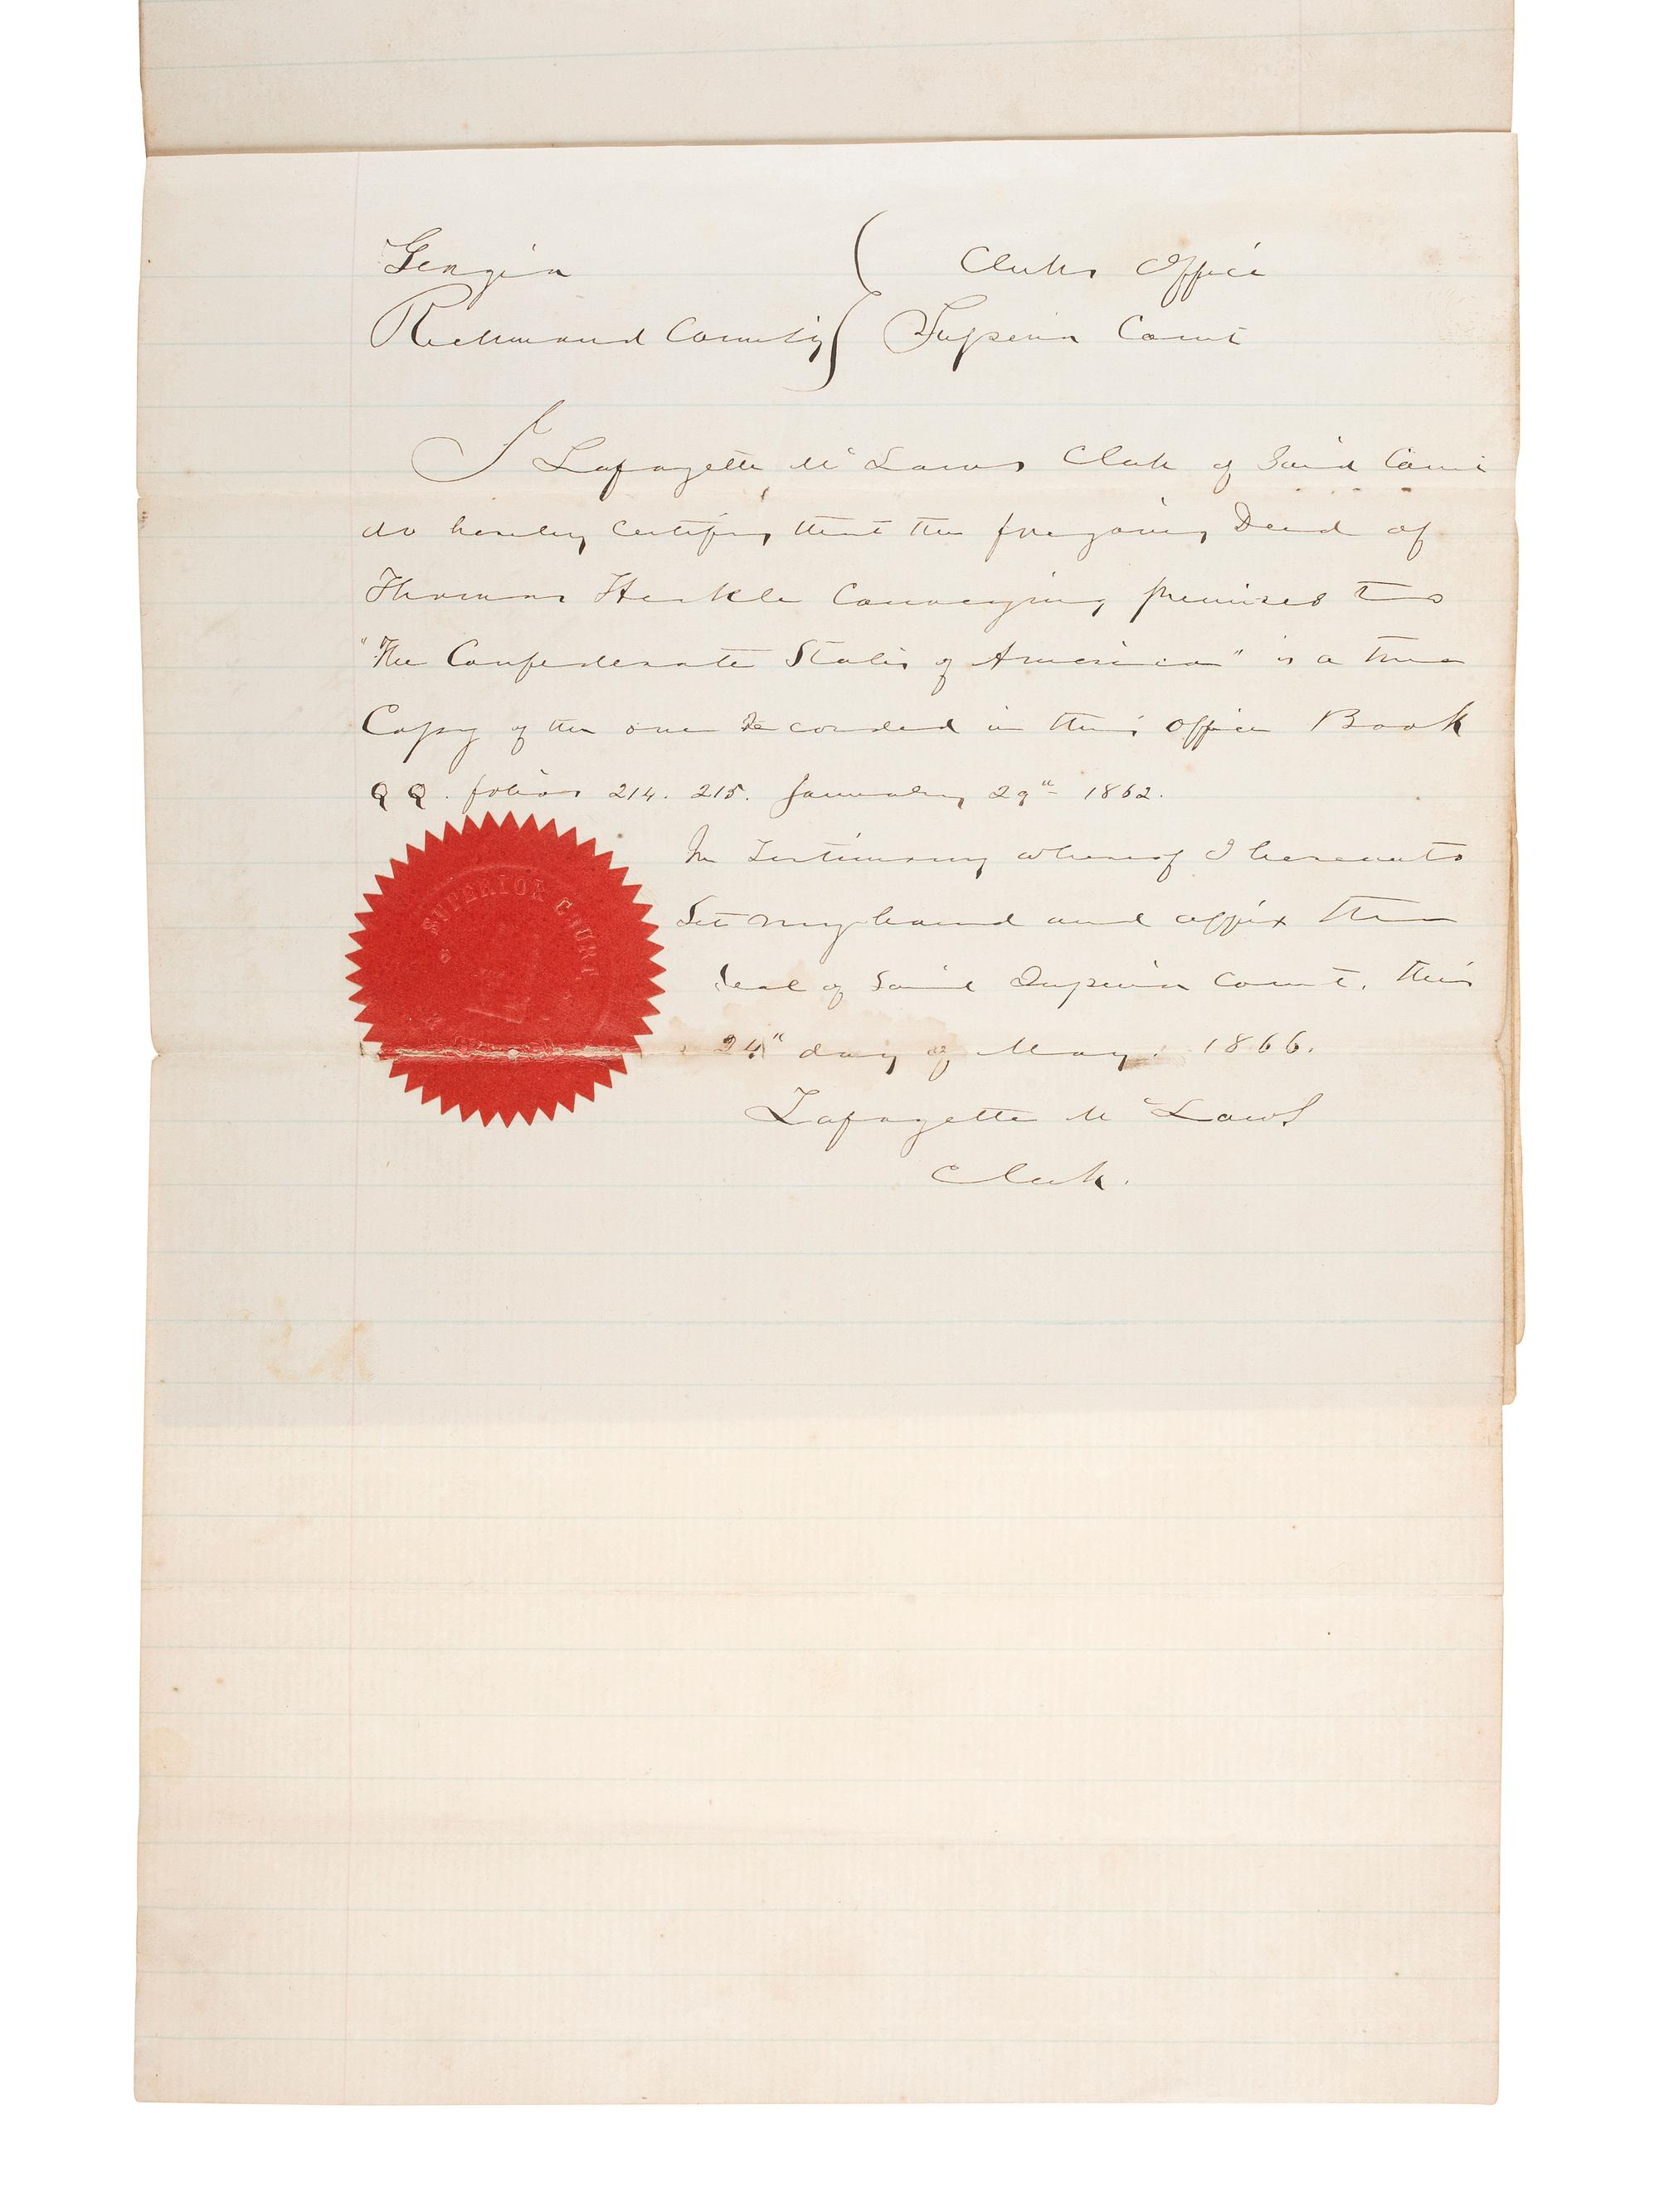 Georgia Clerks Office
Richmond County Superior Court
I Lafayette McLaws Clerk of Said Court
do hereby Certify that the foregoing Deed of
Thomas Heckle Conveying premises to
"The Confederate States of America" is a true
Copy of the one Recorded in this Office Book
QQ. folios 214. 215. January 29" 1862.
In Testimony whereof I hereunto
Set my hand and affix the
Seal of Said Superior Court, this
24" day of May. 1866.
Lafayette McLaws
Clerk.
SUPERIOR COURT